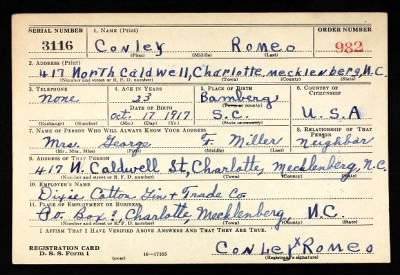 SERIAL NUMBER 1. NAME (Print) ORDER NUMBER
3116 Conley Romeo 982
(First) (Middle) (Last)
2. ADDRESS (Print)
417 North Caldwell, Charlotte, Mecklenberg, N.C.
(Number and street or R. F. D. number) (Town) (County) (State)
3. TELEPHONE 4. AGE IN YEARS 5. PLACE OF BIRTH 6. COUNTRY OF CITIZENSHIP
none 23 Bamberg
DATE OF BIRTH (Town or county)
Oct. 17 1917 S.C. U.S.A
(Exchange) (No.) (Mo.) (Day) (Yr.) (State or country)
7. NAME OF PERSON WHO WILL ALWAYS KNOW YOUR ADDRESS 8. RELATIONSHIP OF THAT PERSON
Mrs. George F. Miller neighbor
(Mr., Mrs., Miss) (First) (Middle) (Last)
9. ADDRESS OF THAT PERSON
417 N. Caldwell St, Charlotte, Mecklenberg, N.C.
(Number and street or R. F. D. number) (Town) (County) (State)
10. EMPLOYER'S NAME
Dixie Cotton Gin + Trade Co
11. PLACE OF EMPLOYMENT OR BUSINESS
P.O. Box ?, Charlotte, Mecklenberg, N.C.
(Number and street or R. F. D. number) (Town) (County) (State)
I AFFIRM THAT I HAVE VERIFIED ABOVE ANSWERS AND THAT THEY ARE TRUE.
REGISTRATION CARD
D. S. S. Form 1 16—17105 Conley X Romeo